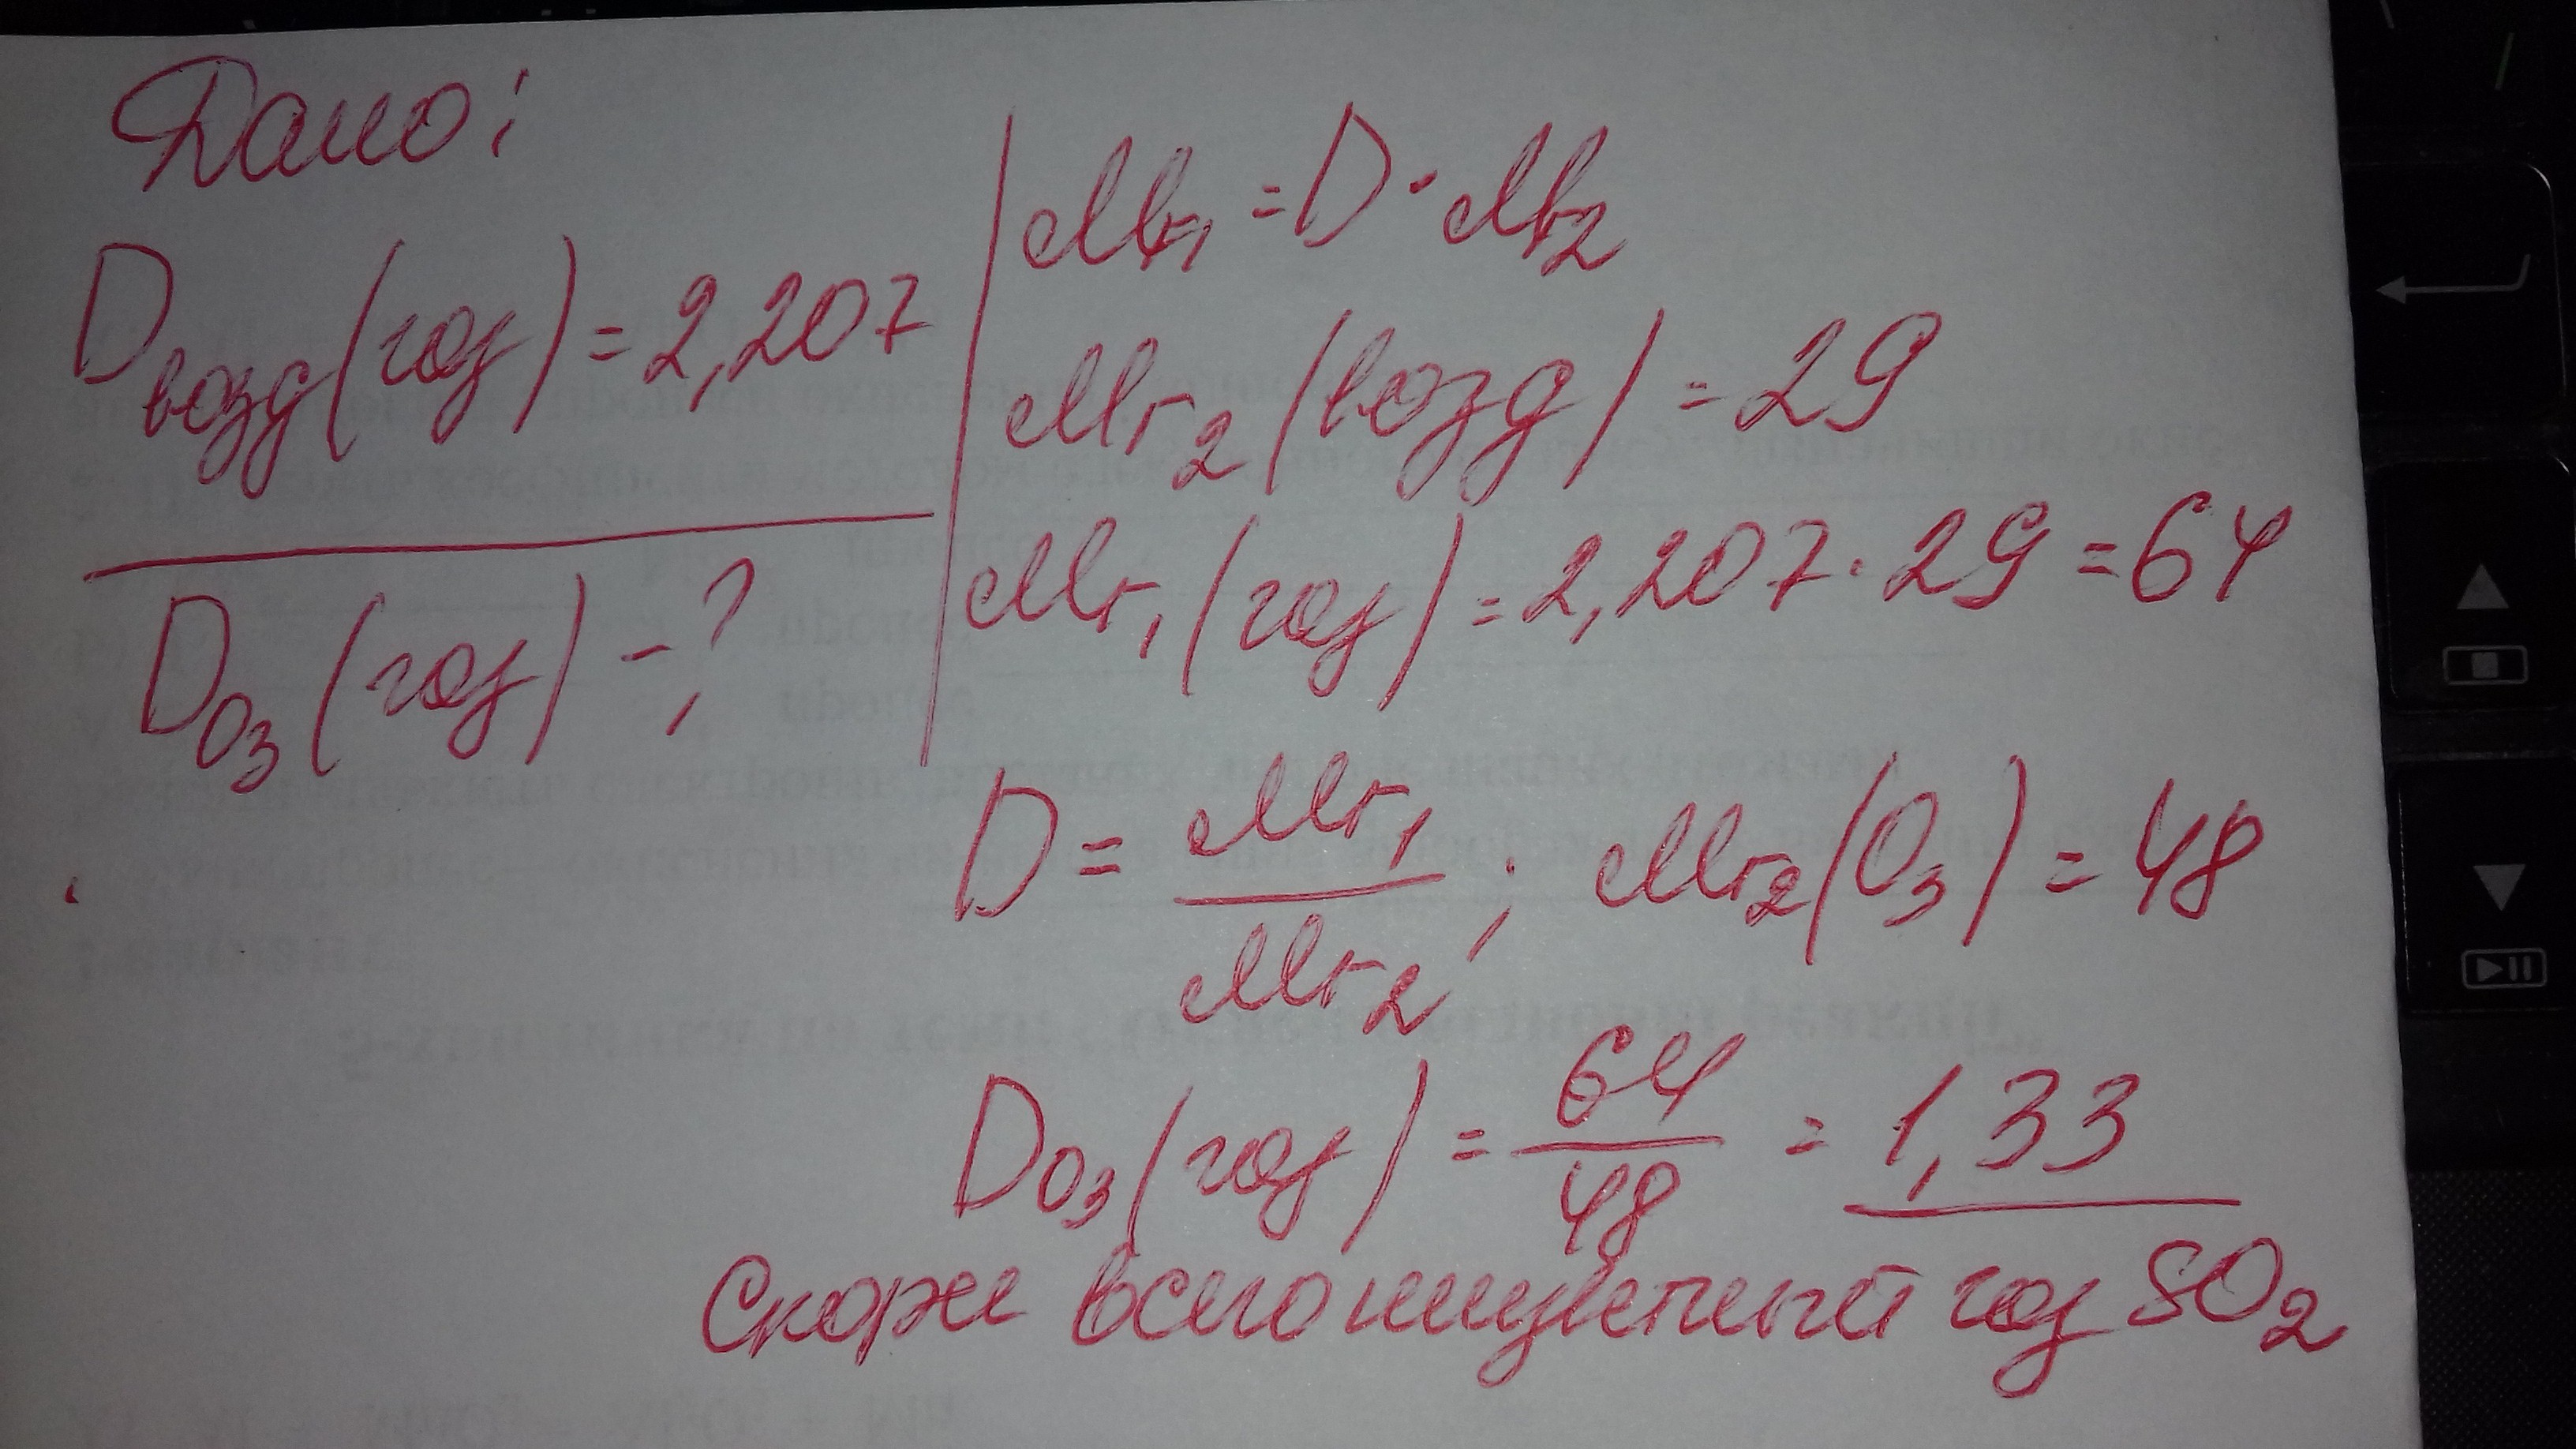 Дано:
Dвозд(газ) = 2,207
DO3(газ) - ?
Mr1 = D · Mr2
Mr2(возд) = 29
Mr1(газ) = 2,207 · 29 = 64
D = Mr1 / Mr2 ; Mr2(O3) = 48
DO3(газ) = 64 / 48 = 1,33
Скорее всего газ SO2